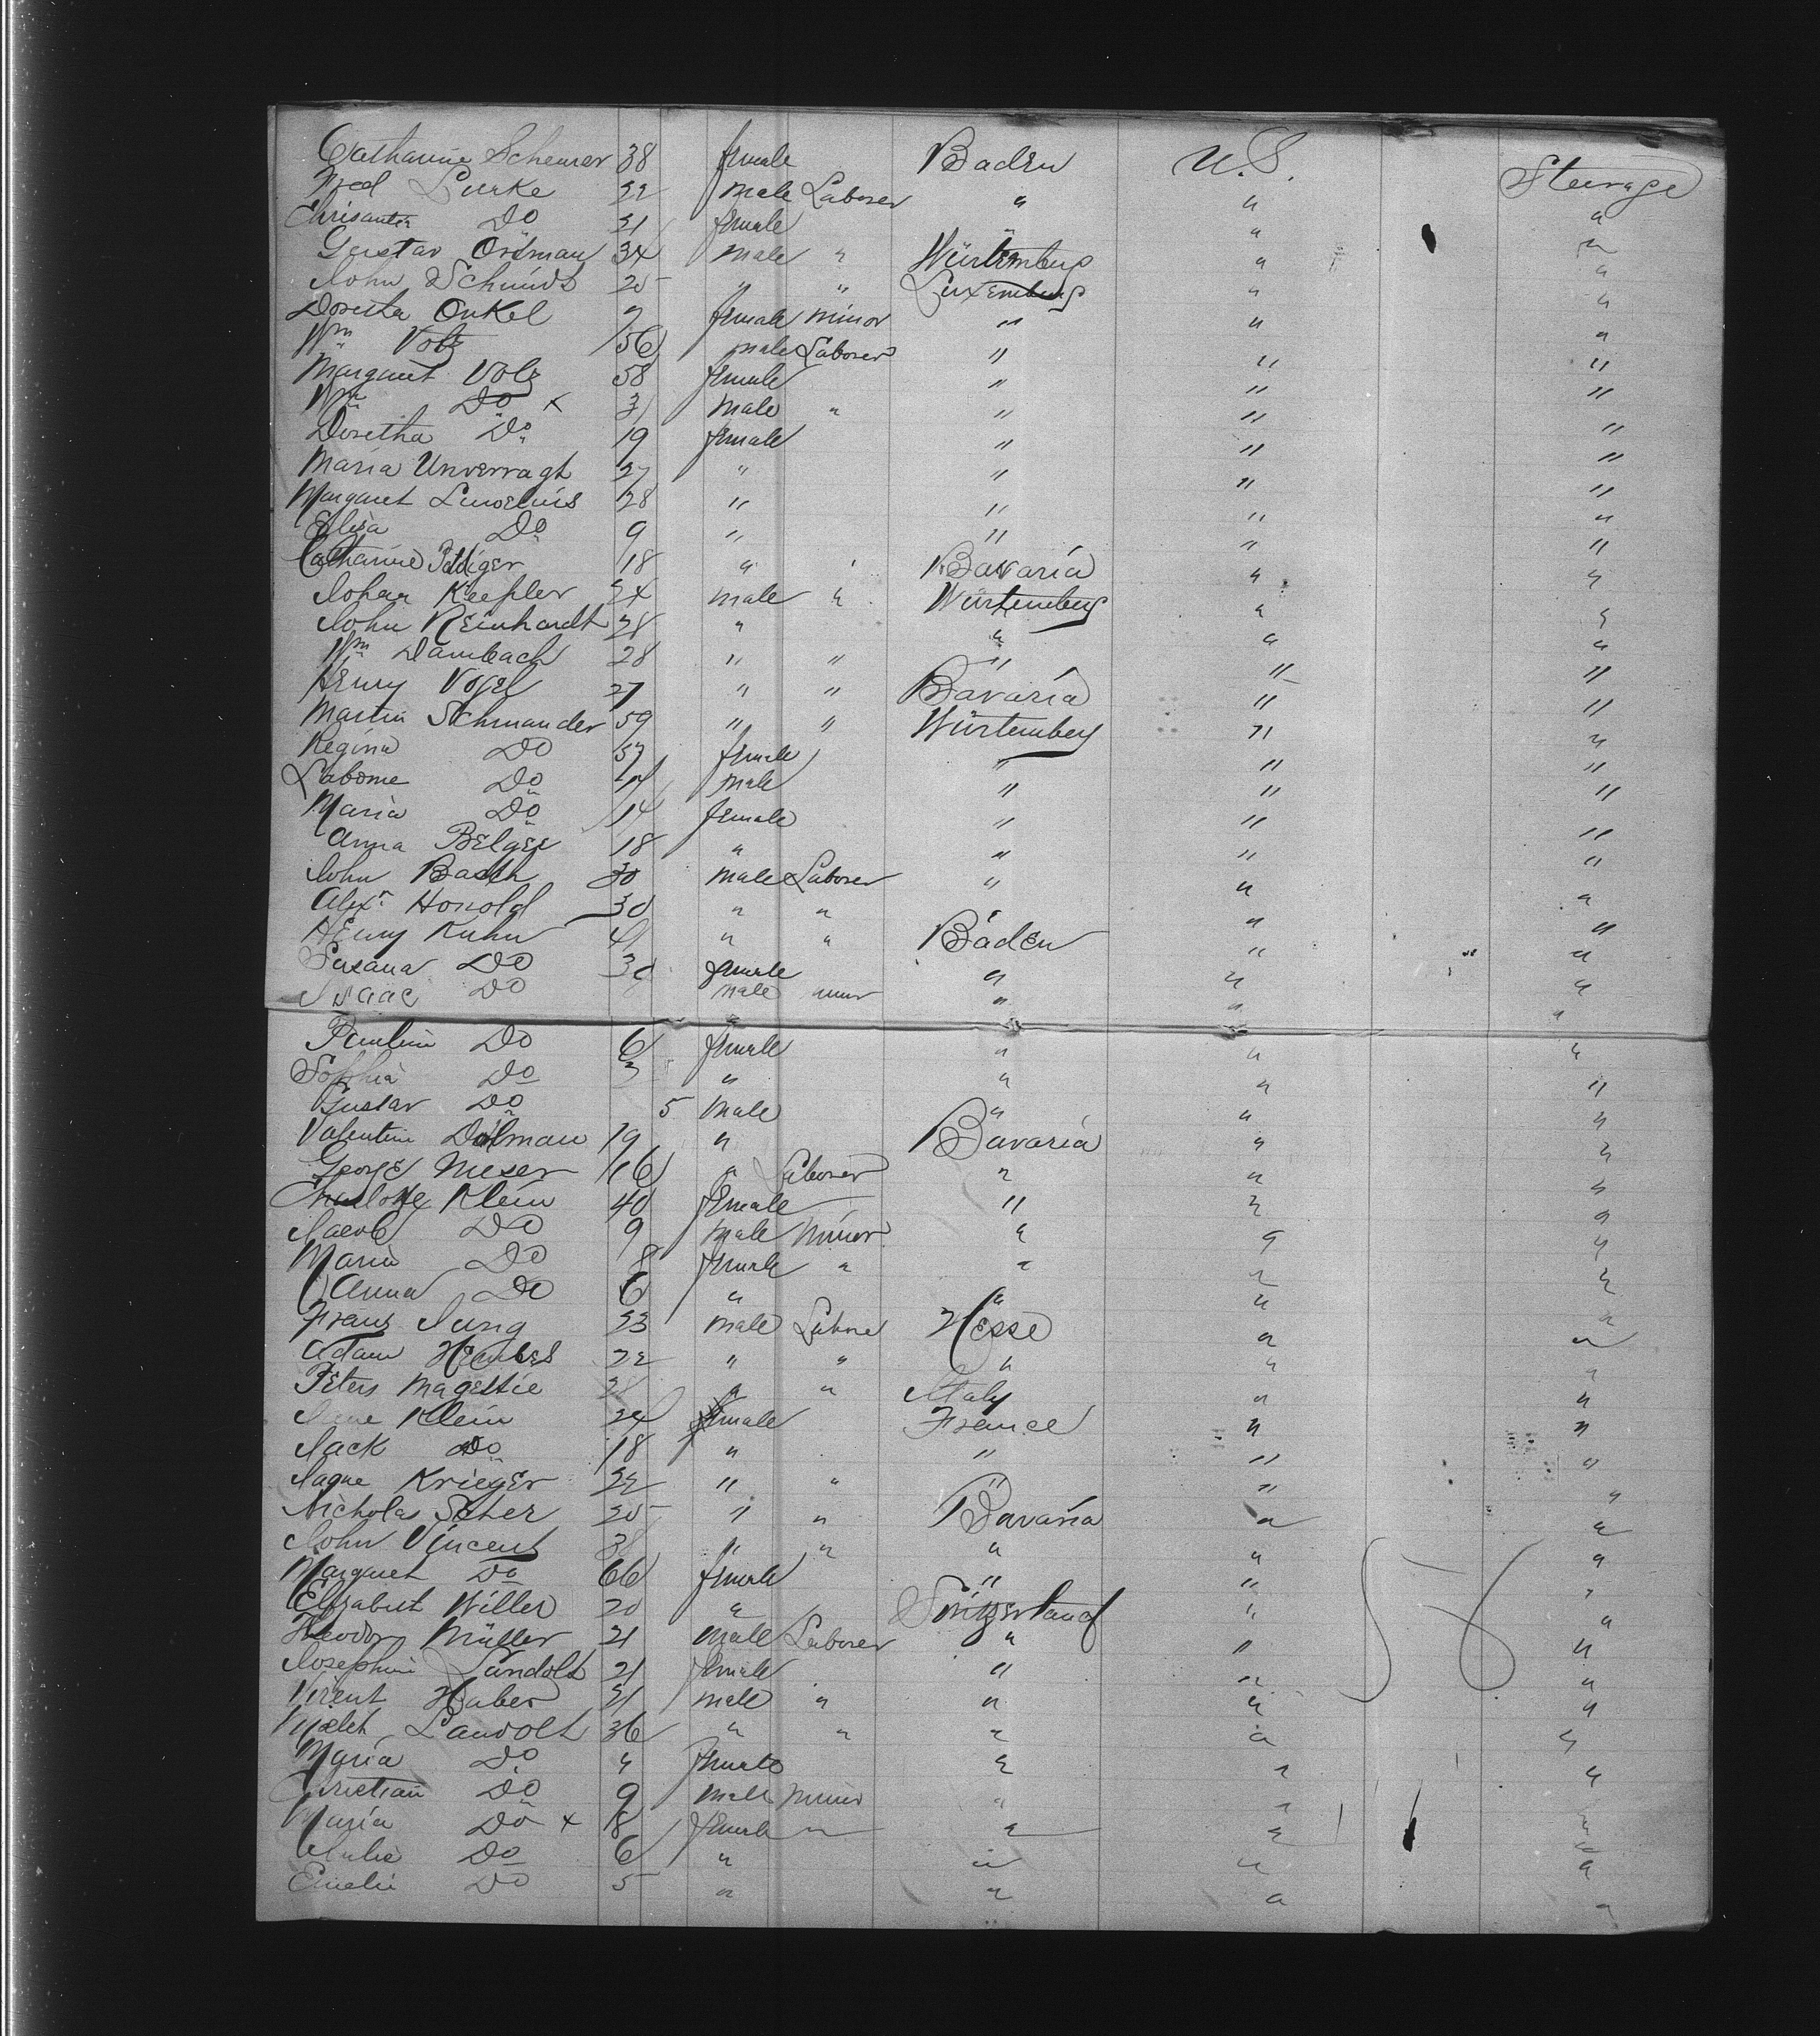 Catharine Scheurer 38 female Baden U.S. Steerage
Fred Lurke 22 male Laborer " " "
Chrisantia Do 21 female " " "
Gustav Ortman 34 male " Würtemberg " "
John Schmidt 25 " " Luxemburg " "
Doretta Onkel 7 female minor " " "
Wm Volz 56 male Laborer " " "
Margaret Volz 58 female " " "
Wm Do x 31 male " " " "
Doretha Do 19 female " " "
Maria Unverragt 27 " " " "
Margaret 28 " " " "
Elisa Do 9 " " " "
Catharine 18 " ' Bavaria " "
Johan Keepler 24 male " Würtemberg " "
John Reinhardt 28 " " " "
Wm Dambach 28 " " " " "
Henry Vogel 27 " " Bavaria " "
Martin Schmander 59 " " Würtemberg " "
Regina Do 57 female " " "
Do male " " "
Maria Do 14 female " " "
Anna Belger 18 " " " "
John Basch 30 male Laborer " " "
Alexr Honold 30 " " " "
Henry Kuhn 41 " " Baden " "
Susana Do 30 female " " "
Isaac Do male minor " " "
Pauline Do 6 female " " "
Sophia Do 3 " " " "
Gustav Do 5 male " " "
Valentine Dolman 19 " Bavaria " "
George Meser 16 " Laborer " " "
Charlotte Klein 40 female " " "
Jacob Do 9 male minor " " "
Maria Do 8 female " " " "
Anna Do 6 " " " "
Franz Jung 23 male Laborer Hesse " "
Adam 22 " " " " "
Peters Magestie " " Italy " "
Klein 24 female France " "
Jack Do 18 " " " "
Krieger 22 " " " " "
Nicholas Scher 20 " " Bavaria " "
John Vincent " " " " "
Margaret Do 66 female " " "
Elizabeth Willer 20 " Switzerland " "
Theodor Müller 21 male Laborer " " "
Josephine Landolt 21 female " " "
Huber 21 male " " " "
Landolt 36 " " " " "
Maria Do " female " " "
Christian Do 9 male minor " " "
Maria Do x 8 female " " " "
Julie Do 6 " " " "
Emelie Do 5 " " " "
56